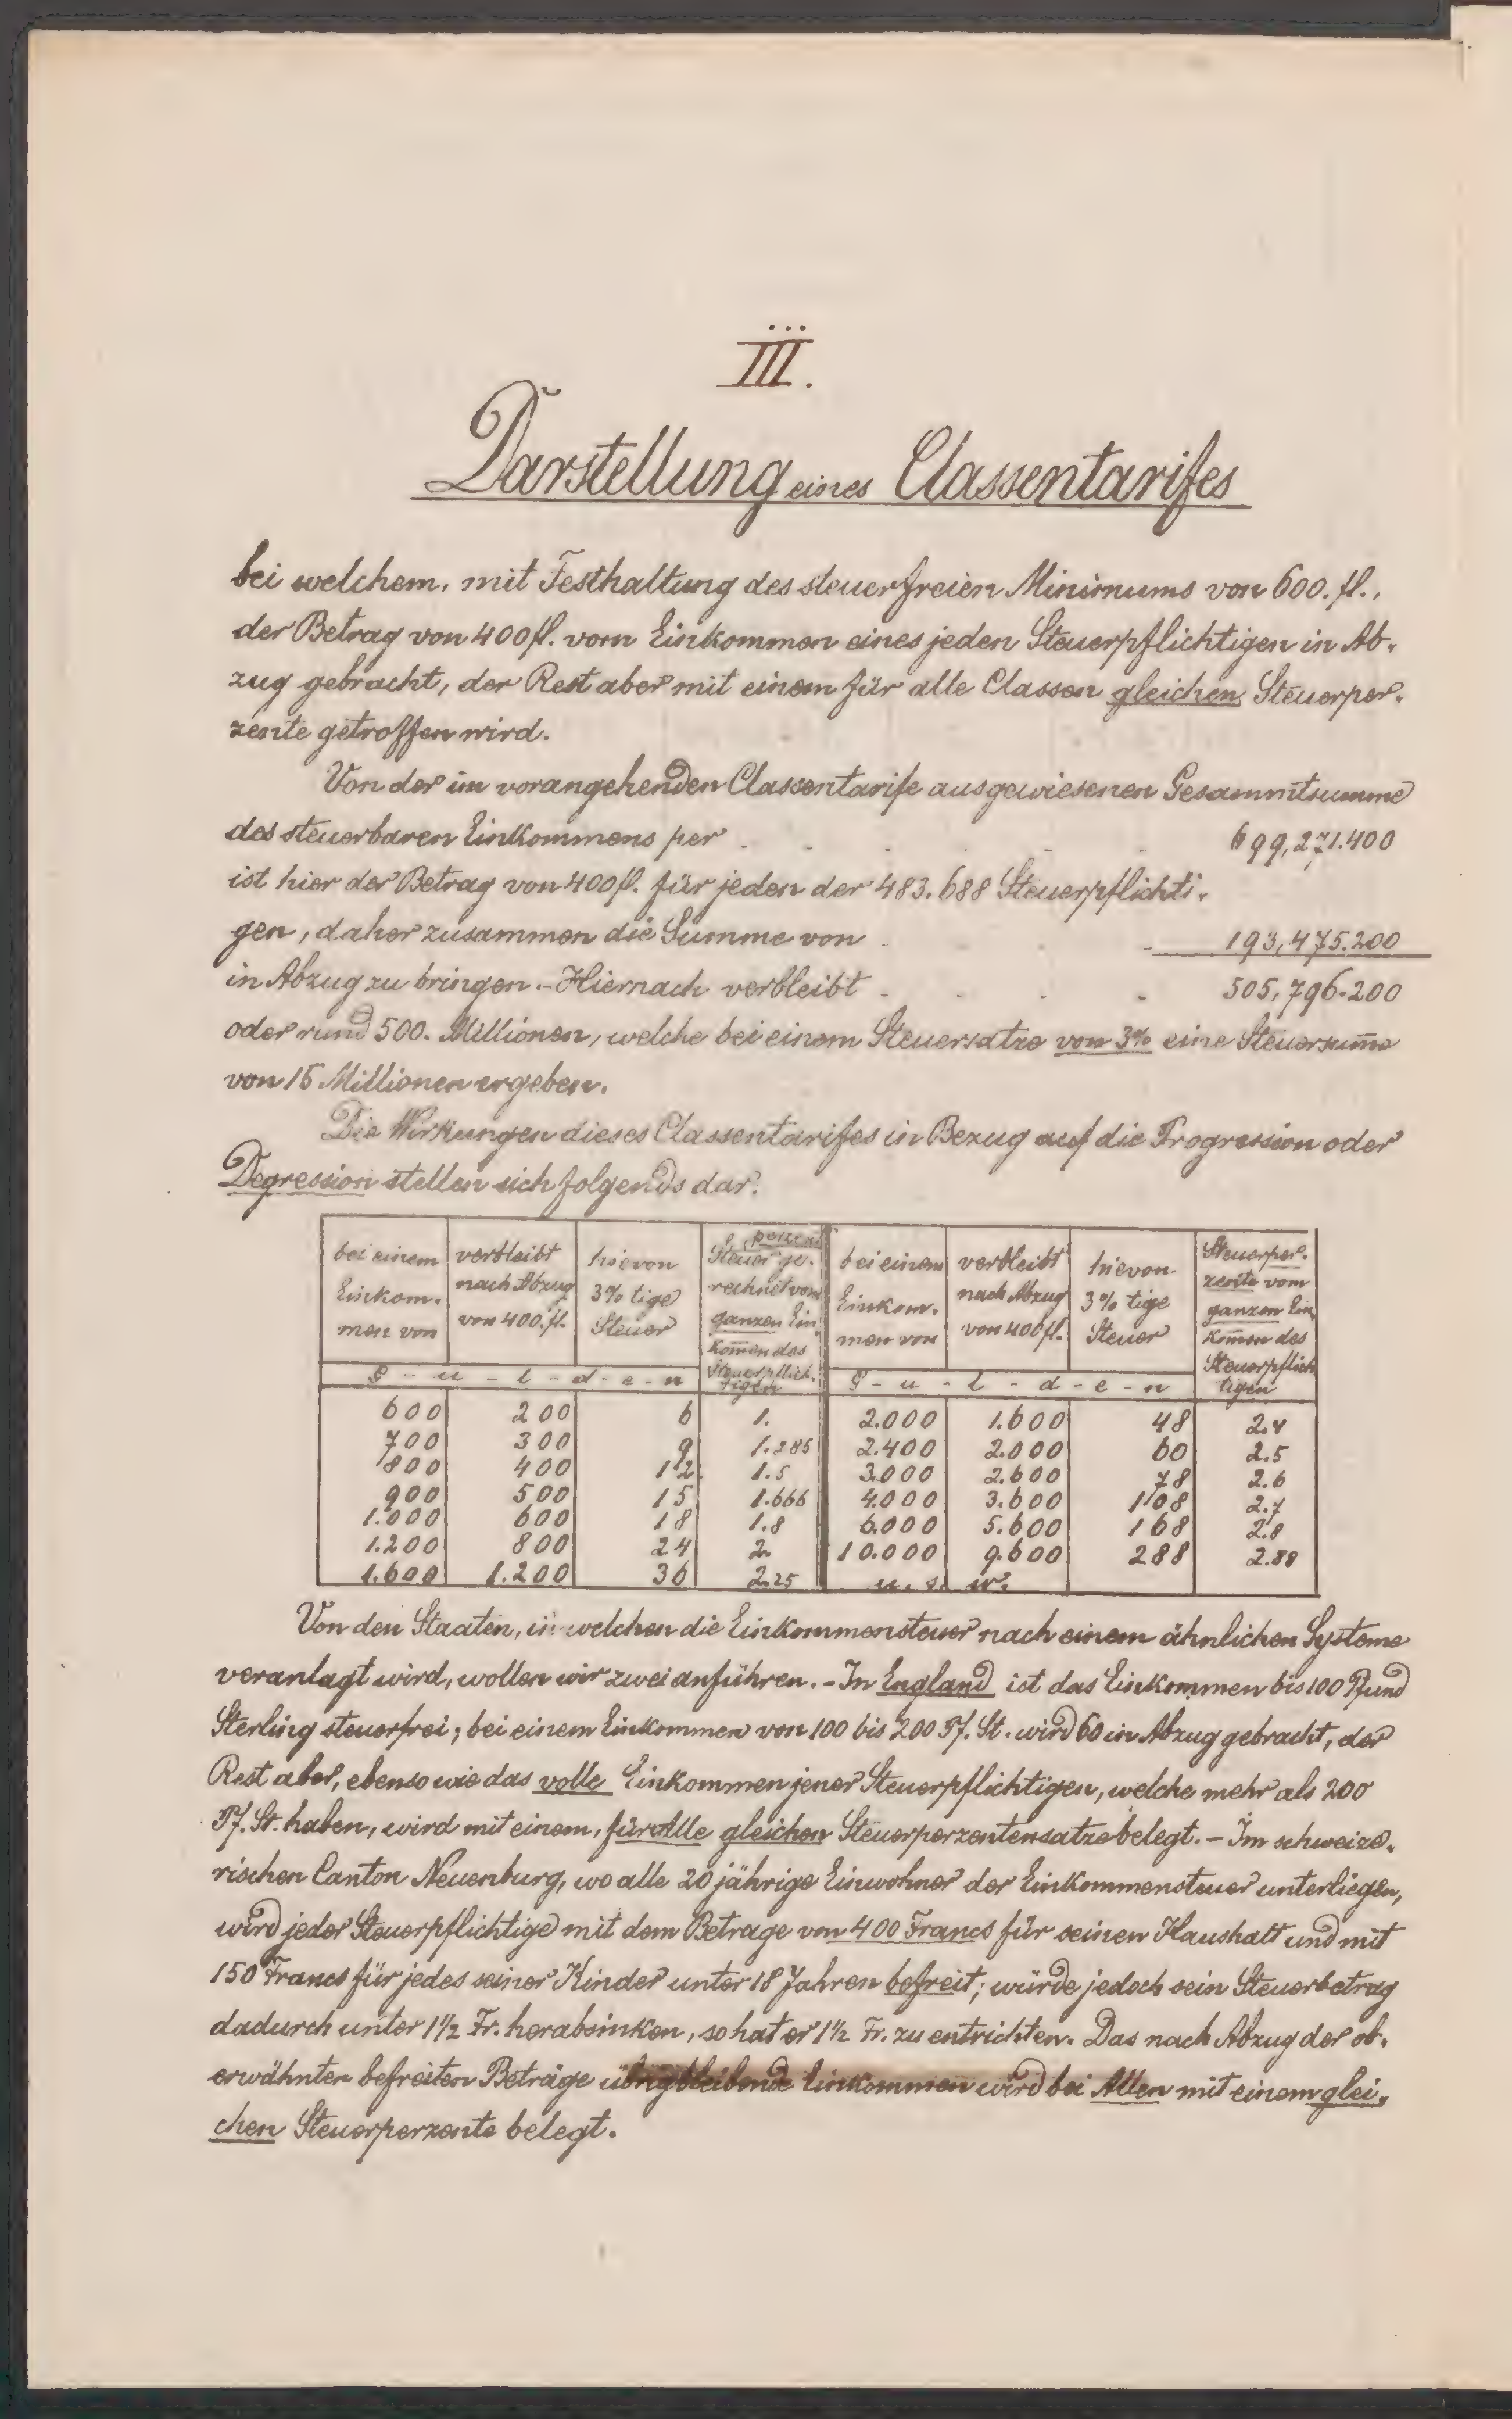 III.
Darstellung eines Classentarifes
bei welchem, mit Festhaltung des steuerfreien Minimums von 600. fl.,
der Betrag von 400 fl. vom Einkommen eines jeden Steuerpflichtigen in Ab-
zug gebracht, der Rest aber mit einem für alle Classen gleichen Steuerper-
zente getroffen wird.
Von der im vorangehenden Classentarife ausgewiesenen Gesammtsumme
des steuerbaren Einkommens per . . . . . 699,271.400
ist hier der Betrag von 400 fl. für jeden der 483.688 Steuerpflichti-
gen, daher zusammen die Summe von . . . 193,475.200
in Abzug zu bringen. - Hiernach verbleibt . . . . 505,796.200
oder rund 500. Millionen, welche bei einem Steuersatze von 3% eine Steuersum̅e
von 15 Millionen ergeben.
Die Wirkungen dieses Classentarifes in Bezug auf die Progression oder
Degression stellen sich folgends dar:
bei einem Einkom- men von | verbleibt nach Abzug von 400. fl. | hievon 3% tige Steuer | Steuer ge- rechnet vom ganzen Ein kom̅en des Steuerpflich- tigen | bei einem Einkom- men von | verbleibt nach Abzug von 400 fl. | hievon 3% tige Steuer | Steuerper- zente vom ganzen Ein kom̅en des Steuerpflich tigen
G - u - l - d - e - n | G - u - l - d - e - n
600 200 6 1. 2.000 1.600 48 2.4
700 300 9 1.285 2.400 2.000 60 2.5
800 400 12 1.5 3.000 2.600 78 2.6
900 500 15 1.666 4.000 3.600 108 2.7
1.000 600 18 1.8 6.000 5.600 168 2.8
1.200 800 24 2. 10.000 9.600 288 2.88
1.600 1.200 36 2.25 u. s. w.
Von den Staaten, in welchen die Einkommensteuer nach einem ähnlichen Systeme
veranlagt wird, wollen wir zwei anführen. - In England ist das Einkommen bis 100 Pfund
Sterling steuerfrei; bei einem Einkommen von 100 bis 200 Pf. St. wird 60 in Abzug gebracht, der
Rest aber, ebenso wie das volle Einkommen jener Steuerpflichtigen, welche mehr als 200
Pf. St. haben, wird mit einem, für Alle gleichen Steuerperzentensatze belegt. - Im schweize-
rischen Canton Neuenburg, wo alle 20 jährige Einwohner der Einkommensteuer unterliegen,
wird jeder Steuerpflichtige mit dem Betrage von 400 Francs für seinen Haushalt und mit
150 Francs für jedes seiner Kinder unter 18 Jahren befreit; würde jedoch sein Steuerbetrag
dadurch unter 1½ Fr. herabsinken, so hat er 1½ Fr. zu entrichten. Das nach Abzug der ob-
erwähnten befreiten Beträge übrigbleibende Einkommen wird bei Allen mit einem glei-
chen Steuerperzente belegt.